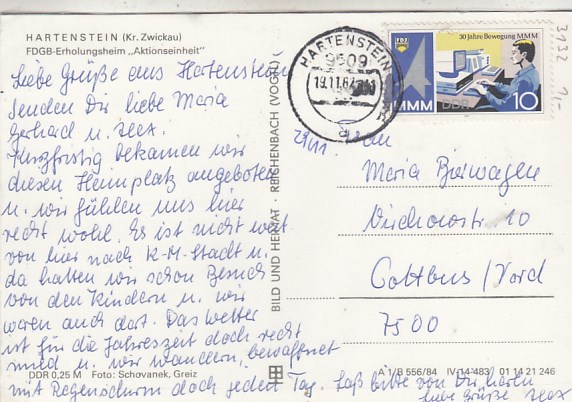 HARTENSTEIN (Kr. Zwickau)
FDGB-Erholungsheim „Aktionseinheit"
Liebe Grüße aus Hartenstein
senden Dir liebe Maria
Gerhard u.
Kurzfristig bekamen wir
diesen Heimplatz angeboten
u. wir fühlen uns hier
recht wohl. Es ist nicht weit
von hier nach K-M-Stadt u.
da hatten wir schon Besuch
von den Kindern u. wir
waren auch dort. Das Wetter
ist für die Jahreszeit doch recht
mild u. wir wandern, bewaffnet
mit Regenschirm doch jeden Tag. Laß bitte von Dir hören
liebe Grüße
DDR 0,25 M Foto: Schovanek, Greiz
BILD UND HEIMAT · REICHENBACH (VOGTL)
HARTENSTEIN
9509
19.11.87
30 Jahre Bewegung MMM
FDJ
MMM
DDR
10
3132
1,-
Maria
Virchowstr. 10
Cottbus/Nord
7500
A 1/B 556/84 IV-14-483 01 14 21 246